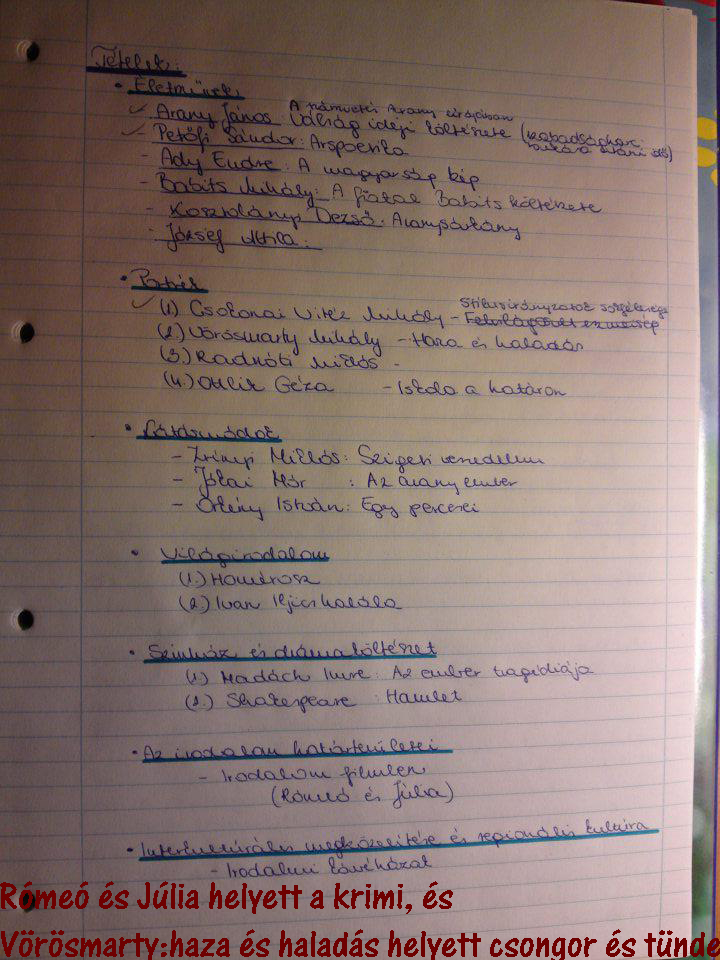 Tételek:
• Életművek
✓ Arany János: Válság idejű költészete (szabadságharc
A námuetis Arany lírájában
bukása utáni idő)
✓ Petőfi Sándor: Arspoetica
- Ady Endre: A magyarság kép
- Babits Mihály: A fiatal Babits költészete
- Kosztolányi Dezső: Aranysárkány
- József Attila:
• Portrék
✓ (1) Csokonai Vitéz Mihály - Felvilágosult eszmeiség
Stílusirányzatok sokfélesége
(2) Vörösmarty Mihály - Haza és haladás
(3) Radnóti Miklós -
(4.) Ottlik Géza - Iskola a határon
• Látásmódok
- Zrínyi Miklós: Szigeti veszedelem
- Jókai Mór : Az arany ember
- Örkény István: Egy percesei
• Világirodalom
(1.) Homérosz
(2.) Ivan Iljics halála
• Színház és drámaköltészet
(1) Madách Imre: Az ember tragédiája
(2.) Shakespeare : Hamlet
• Az irodalom határterületei
- Irodalom filmen
(Rómeó és Júlia)
• Interkulturális megközelítése és regionális kultúra
- Irodalmi kávéházak
Rómeó és Júlia helyett a krimi, és
Vörösmarty:haza és haladás helyett csongor és tünde